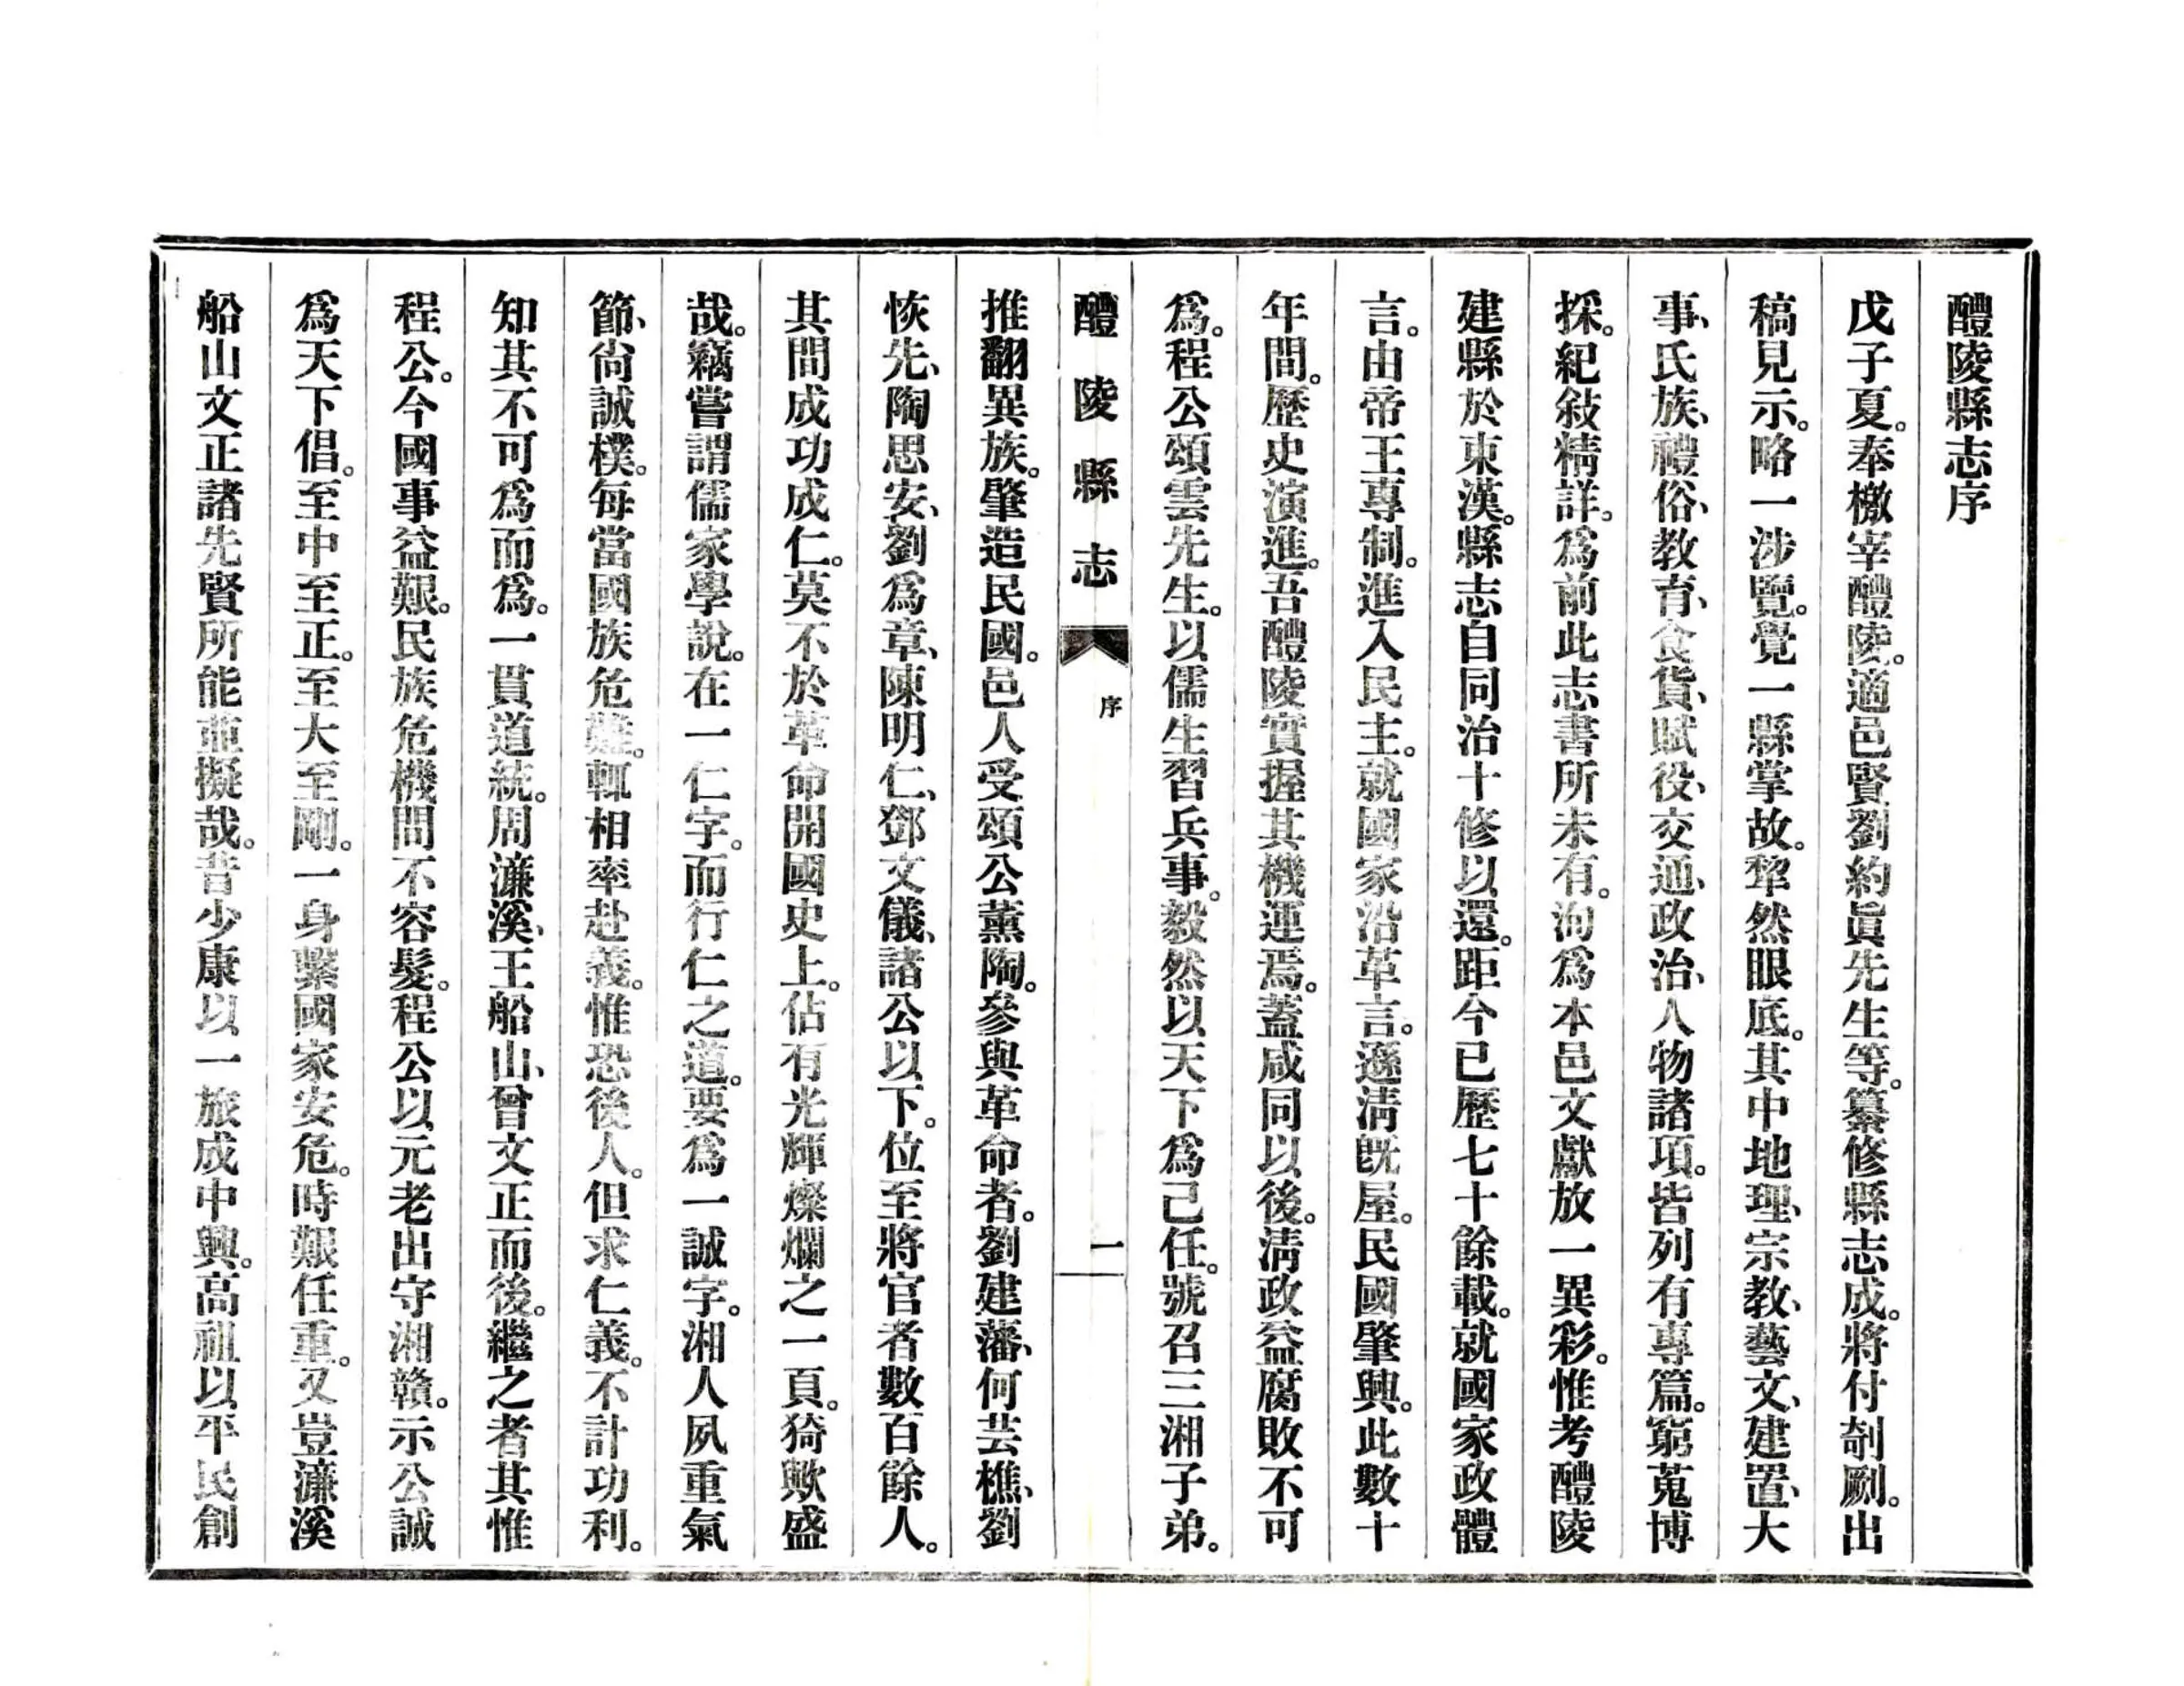 醴陵縣志序
戊子夏。奉檄宰醴陵。適邑賢劉約眞先生等。纂修縣志成。將付剞劂。出
稿見示。略一涉覽。覺一縣掌故。犂然眼底。其中地理、宗教、藝文、建置、大
事、氏族、禮俗、教育、食貨、賦役、交通、政治、人物諸項。皆列有專篇。窮蒐博
採。紀敍精詳。爲前此志書所未有。洵爲本邑文獻放一異彩。惟考醴陵
建縣於東漢。縣志自同治十修以還。距今已歷七十餘載。就國家政體
言。由帝王專制。進入民主。就國家沿革言。遜清旣屋。民國肇興。此數十
年間。歷史演進。吾醴陵實握其機運焉。蓋咸同以後。清政益腐敗不可
爲。程公頌雲先生。以儒生習兵事。毅然以天下爲己任。號召三湘子弟。
醴陵縣志
序
一
推翻異族。肇造民國。邑人受頌公薰陶。參與革命者。劉建藩、何芸樵、劉
恢先、陶思安、劉爲章、陳明仁、鄧文儀、諸公以下。位至將官者數百餘人。
其間成功成仁。莫不於革命開國史上。佔有光輝燦爛之一頁。猗歟盛
哉。竊嘗謂儒家學說。在一仁字。而行仁之道。要爲一誠字。湘人夙重氣
節、尙誠樸。每當國族危難。輒相率赴義。惟恐後人。但求仁義。不計功利。
知其不可爲而爲。一貫道統。周濂溪、王船山、曾文正而後。繼之者其惟
程公。今國事益艱。民族危機間不容髮。程公以元老出守湘贛。示公誠
爲天下倡。至中至正。至大至剛。一身繫國家安危。時艱任重。又豈濂溪
船山文正諸先賢所能亟擬哉。昔少康以一旅成中興。高祖以平民創